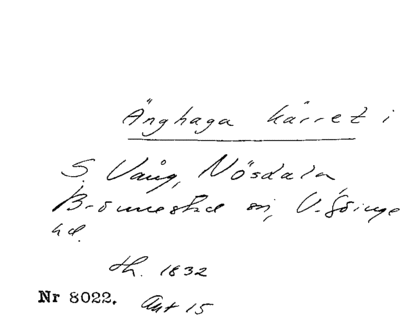 Änghaga kärret i
S. Vång, Nösdala,
Brönnestad sn, V. Göinge
hd.
th. 1832
Nr 8022. Akt 15